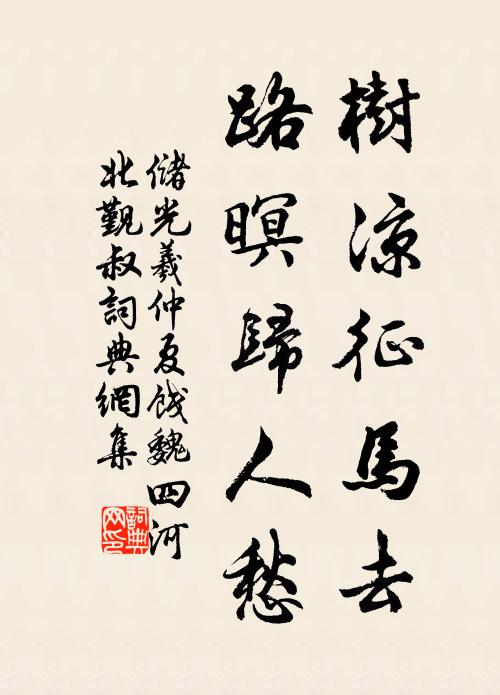 樹涼征馬去
路暝歸人愁
儲光羲仲夏餞魏四河
北覲叔詞典網集
詞典
网印